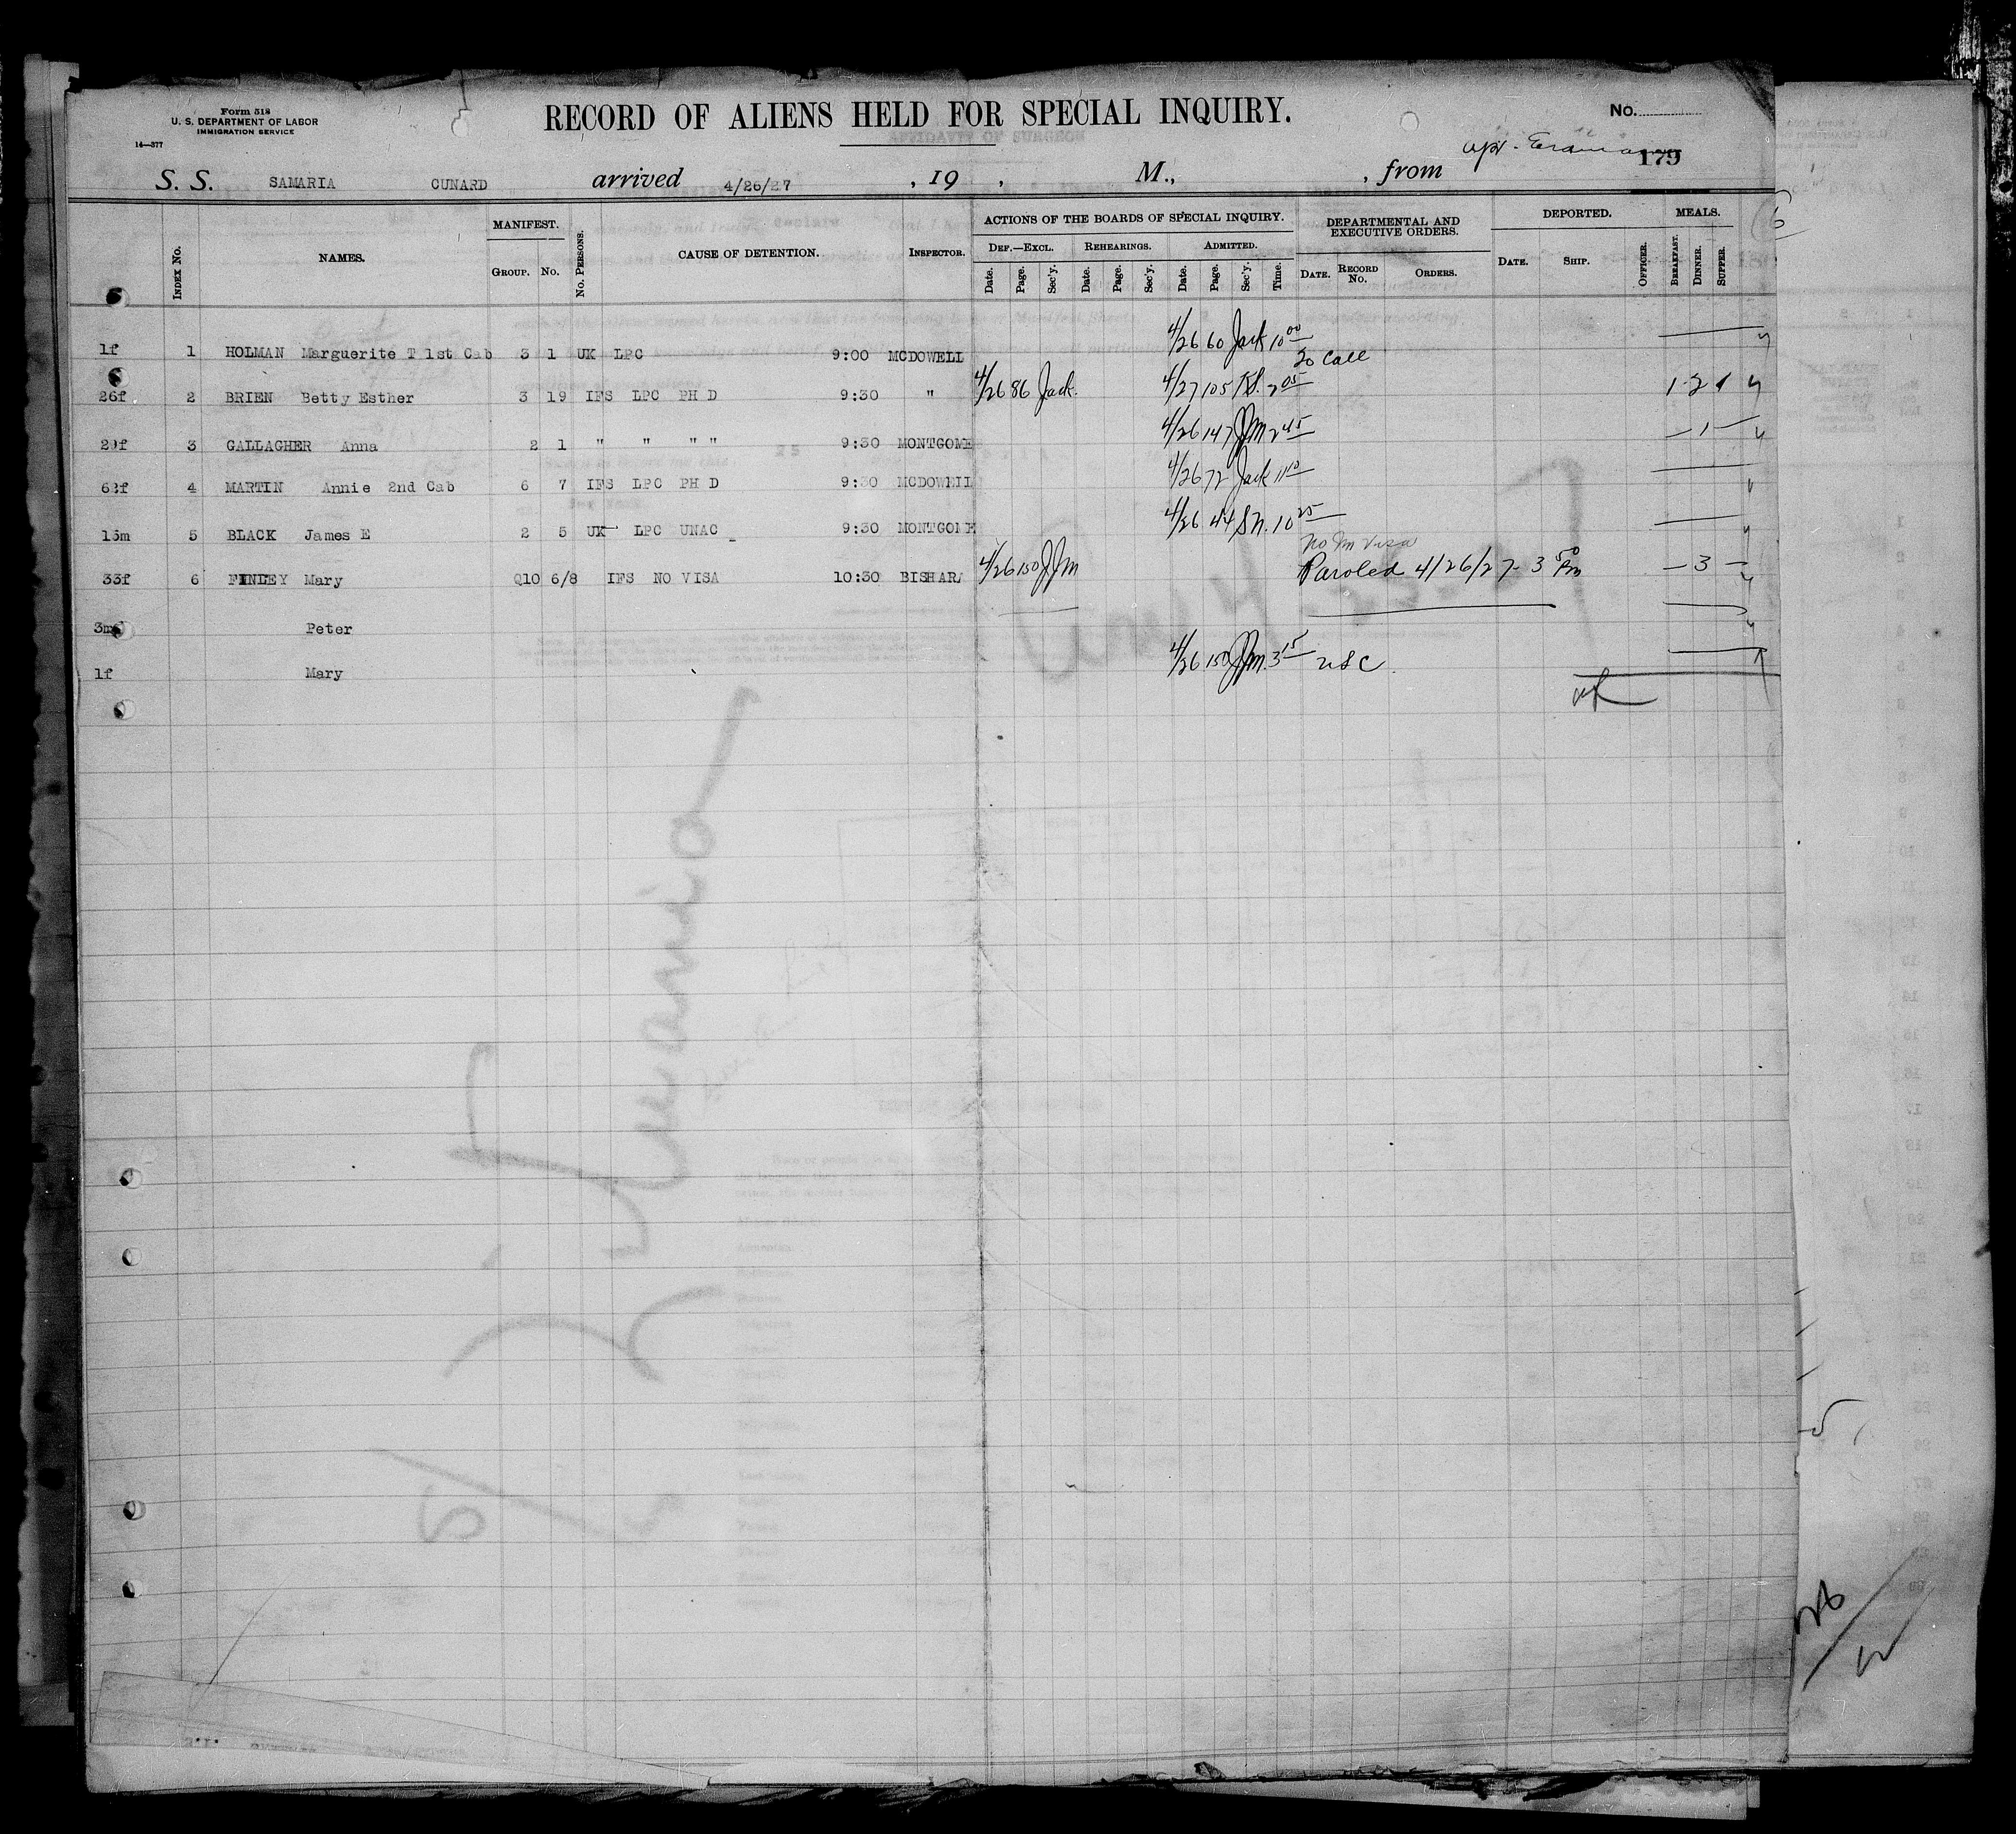 Form 518
U. S. DEPARTMENT OF LABOR
IMMIGRATION SERVICE
14—377
RECORD OF ALIENS HELD FOR SPECIAL INQUIRY.
No.
179
S. S. SAMARIA CUNARD arrived 4/26/27 , 19 , M., , from
INDEX No. NAMES. MANIFEST. GROUP. No. No. PERSONS. CAUSE OF DETENTION. INSPECTOR. ACTIONS OF THE BOARDS OF SPECIAL INQUIRY. DEPARTMENTAL AND EXECUTIVE ORDERS. DEPORTED. MEALS.
DEF.—EXCL. REHEARINGS. ADMITTED.
Date. Page. Sec'y. Date. Page. Sec'y. Date. Page. Sec'y. Time. DATE. RECORD No. ORDERS. DATE. SHIP. OFFICER. BREAKFAST. DINNER. SUPPER.
1f 1 HOLMAN Marguerite T 1st Cab 3 1 UK LPC 9:00 MCDOWELL 4/26 60 Jack 10 00
to call
26f 2 BRIEN Betty Esther 3 19 IFS LPC PH D 9:30 " 4/26 86 Jack. 4/27 105 2 05 1 2 1
29f 3 GALLAGHER Anna 2 1 " " " " 9:30 MONTGOME 4/26 147 JJM 2 45 — 1 —
62f 4 MARTIN Annie 2nd Cab 6 7 IFS LPC PH D 9:30 MCDOWELL 4/26 72 Jack 11 10
15m 5 BLACK James E 2 5 UK LPC UNAC 9:30 MONTGOME 4/26 44 SN. 10 25
No Im Visa
33f 6 FINLEY Mary Q10 6/8 IFS NO VISA 10:30 BISHARA 4/26 150 JJM Paroled 4/26/27 - 3 50 Pm — 3 —
3m Peter
1f Mary 4/26 150 JJM. 3 15 USC